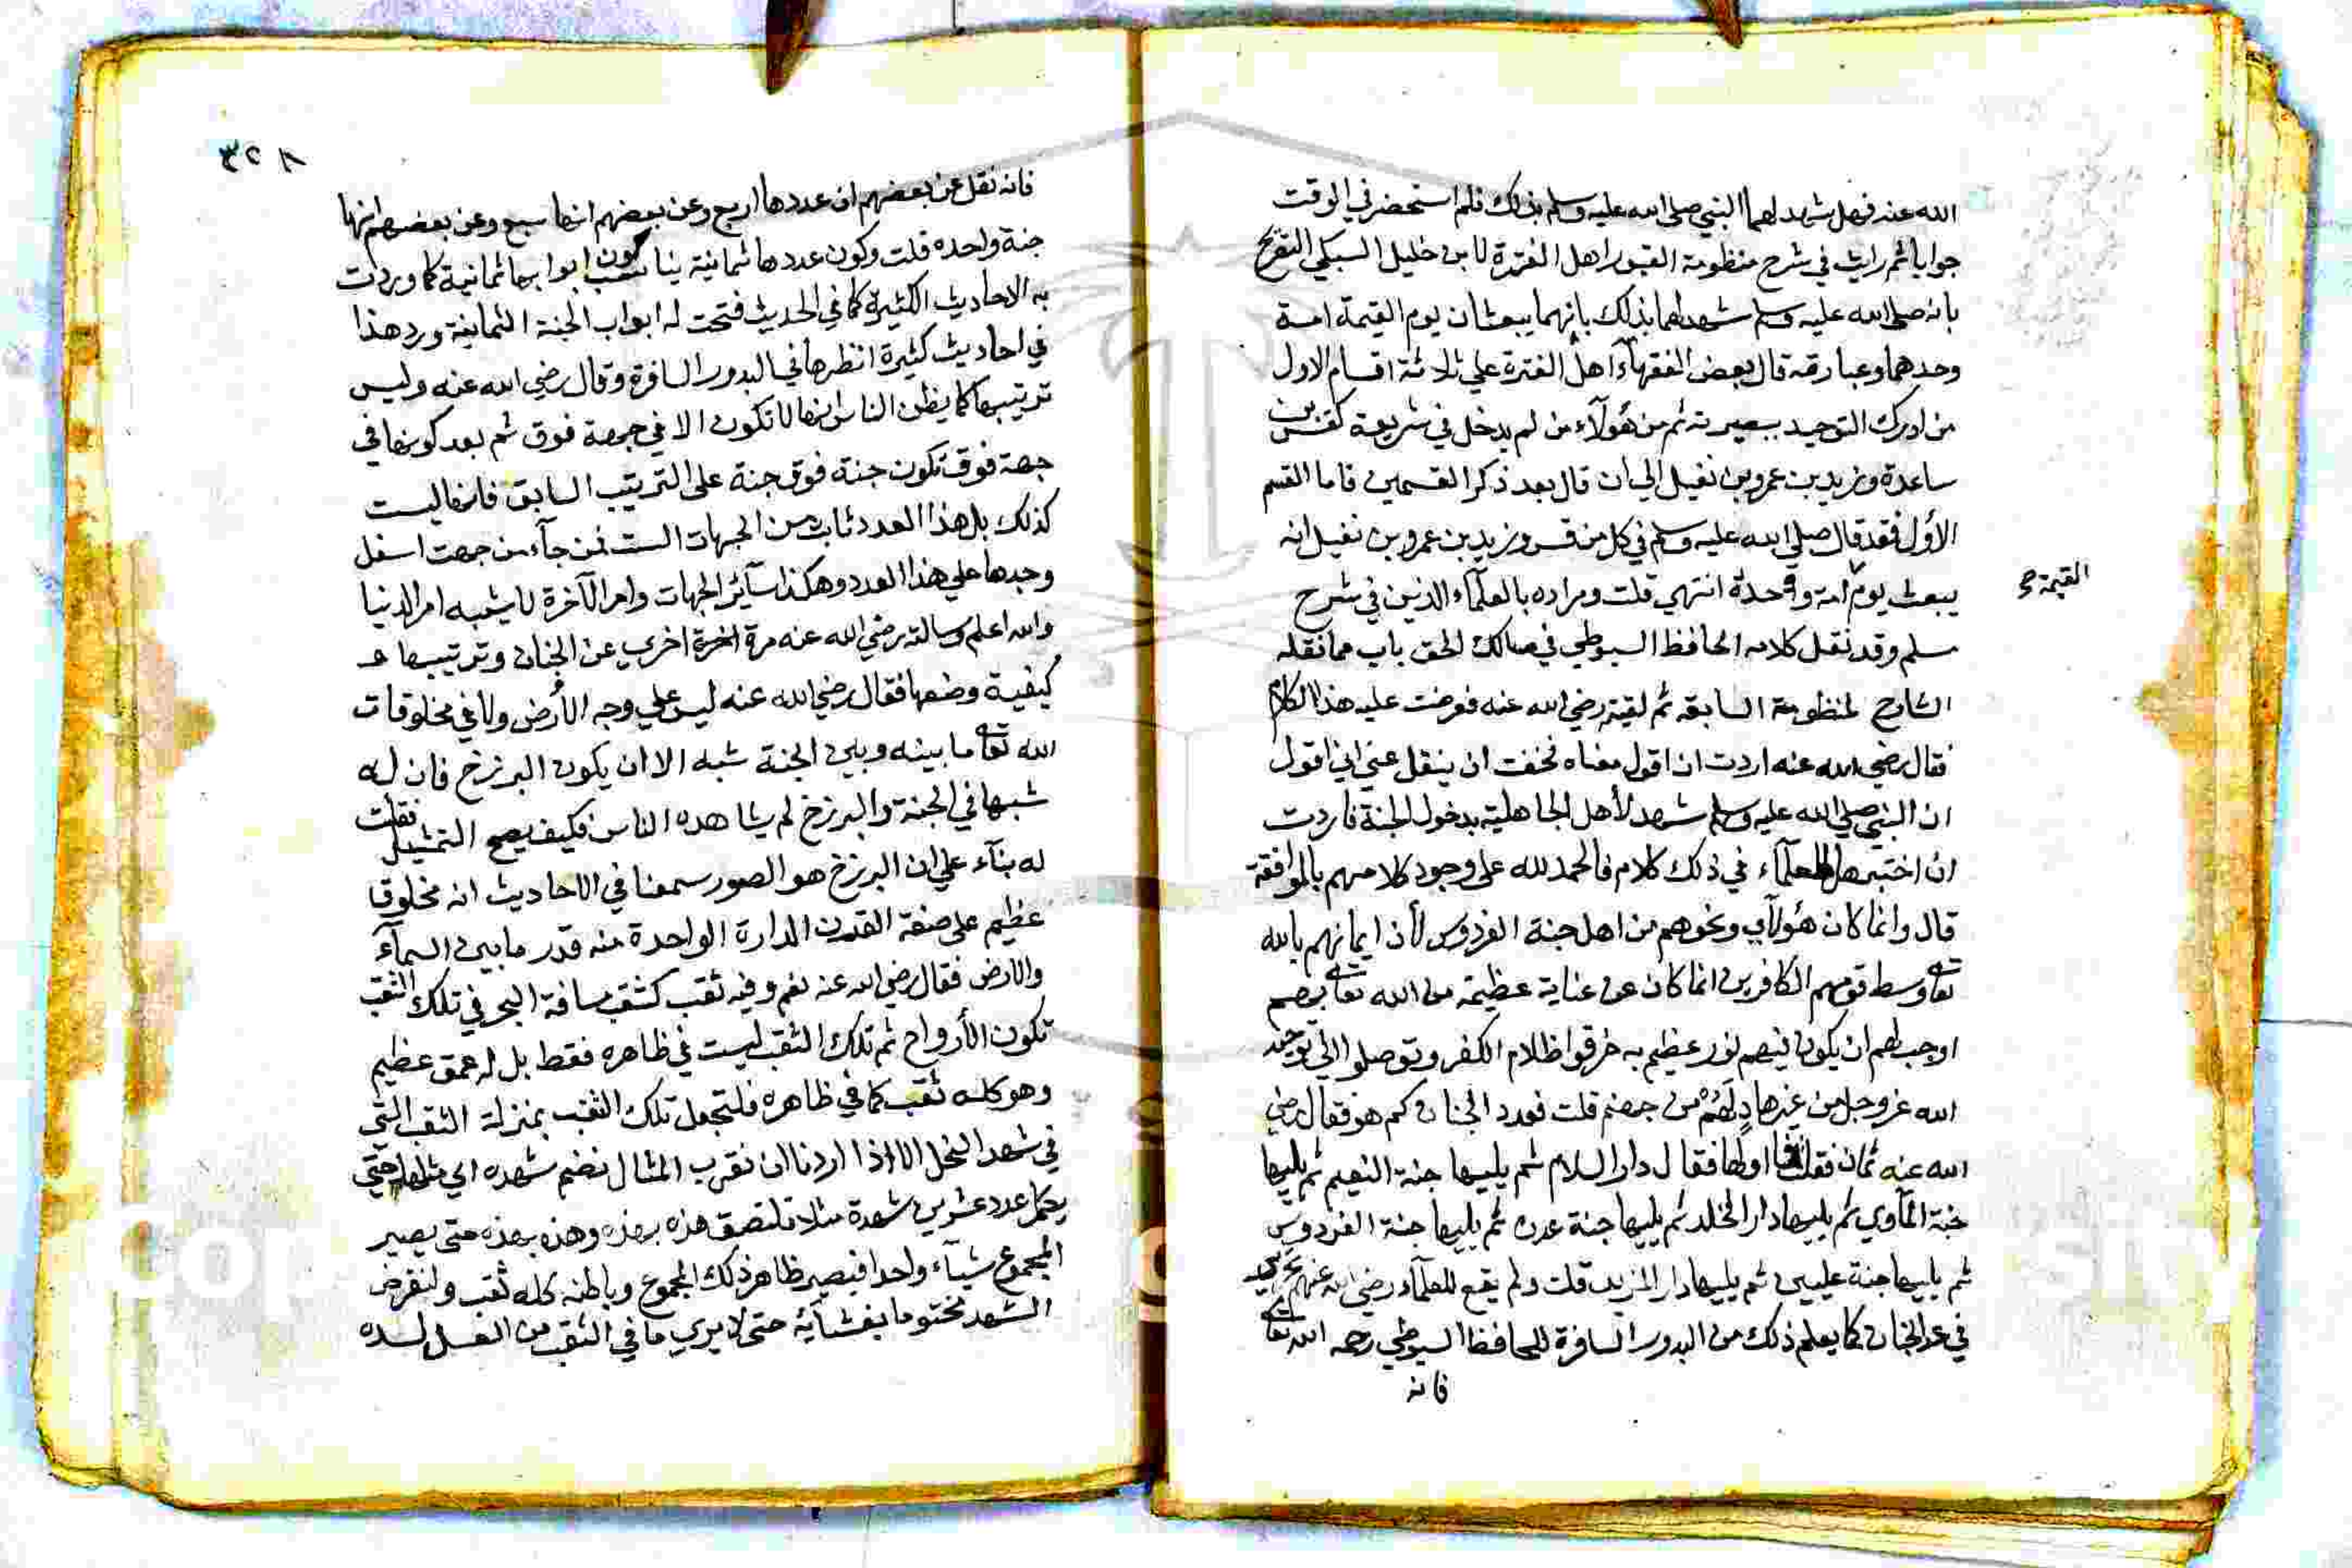 الله عنه فهل شهد لهما النبي صلى الله عليه وسلم بذلك فلم استحضر في الوقت
جوابا ثم رايت في شرح منظومة القبور اهل الفترة لابن خليل السبكي التصريح
بانه صلى الله عليه وسلم شهد لهما بذلك بانهما يبعثان يوم القيمة امة
وحدهما وعبارته قال بعض الفقهآء اهل الفترة علي ثلاثة اقسام الاول
من ادرك التوحيد ببصيرته ثم من هؤلآء من لم يدخل في شريعة كقس بن
ساعدة وزيد بن عمرو بن نفيل الي ان قال بعد ذكر القسمين فاما القسم
الأول فقد قال صلي الله عليه وسلم في كل من قس وزيد بن عمرو بن نفيل انه
يبعث يوم امة وحده انتهي قلت ومراده بالعلمآء الذين في شرح
القيمة صح
مسلم وقد نقل كلامه الحافظ السيوطي في مسالك الحق باب مما نقله
الشارح لمنظومة السابقه ثم لقيته رضي الله عنه فعرضت عليه هذا الكلام
فقال رضي الله عنه اردت ان اقول معناه فخفت ان ينقل عني اني اقول
ان النبي صلي الله عليه وسلم شهد لأهل الجاهلية بدخول الجنة فاردت
ان اختبر هل للعلمآء في ذلك كلام فالحمد لله على وجود كلامهم بالموافقة
قال وانما كان هؤلآي ونحوهم من اهل جنة الفردوس لأن ايمانهم بالله
تعالى وسط قومهم الكافرين انما كان عن عناية عظيمة من الله تعالى بهم
اوجب لهم ان يكون فيهم نور عظيم به خرقوا ظلام الكفر وتوصلوا الي توحيد
الله عز وجل من غير هاد لهم من جهنم قلت فعدد الجنان كم هو فقال رضي
الله عنه ثمان فقلت ما اولها فقال دار السلام ثم يليها جنة النعيم ثم يليها
جنة المآوي ثم يليها دار الخلد ثم يليها جنة عدن ثم يليها جنة الفردوس
ثم يليها جنة عليين ثم يليها دار المزيد قلت ولم يقع للعلمآء رضي الله عنهم تحرير
في عد الجنان كما يعلم ذلك من البدور السافرة للحافظ السيوطي رحمه الله تعالى
فانه
٣٢٨
فانه نقل عن بعضهم ان عددها اربع وعن بعضهم انها سبع وعن بعضهم انها
جنة واحده قلت وكون عددها ثمانية يناسب كون ابوابها ثمانية كما وردت
به الاحاديث الكثيرة كما في الحديث فتحت له ابواب الجنة الثمانية ورد هذا
في احاديث كثيرة انظرها في البدور السافرة وقال رضي الله عنه وليس
ترتيبها كما يظن الناس انها لا تكون الا في جهة فوق ثم بعد كونها في
جهة فوق تكون جنة فوق جنة على الترتيب السابق فانها ليست
كذلك بل هذا العدد ثابت من الجهات الست فمن جآء من جهت اسفل
وجدها علي هذا العدد وهكذا سآئر الجهات وامر الآخرة لا يشبه امر الدنيا
والله اعلم وسالته رضي الله عنه مرة اخرة اخرى عن الجنان وترتيبها عـ
كيفية وضعها فقال رضي الله عنه ليس علي وجه الأرض ولا في مخلوقات
الله تعالى ما بينه وبين الجنة شبه الا ان يكون البرزخ فان له
شبها في الجنة والبرزخ لم يشاهده الناس فكيف يصح التمثيل فقلت
له بنآء علي ان البرزخ هو الصور سمعنا في الاحاديث انه مخلوقا
عظيم على صفة القرن الدارة الواحدة منه قدر ما بين السمآء
والارض فقال رضي الله عنه نعم وفيه ثقب كشقب مسافة البحر في تلك الثقب
تكون الأرواح ثم تلك الثقب ليست في ظاهره فقط بل له عمق عظيم
وهو كله ثقب كما في ظاهره فلتجعل تلك الثقب بمنزلة الثقب التي
في شهد النحل الا اذا اردنا ان نقرب المثال نضم شهده الي مثلها حتي
يكمل عدد عشرين شهدة مثلا تلتصق هذه بهذه وهذه بهذه حتى يصير
المجموع شيآء واحدا فيصير ظاهر ذلك المجموع وباطنه كله ثقب ولنفرض
الشهد مختوما بغشآئه حتى لا يري ما في الثقب من العسل لسده